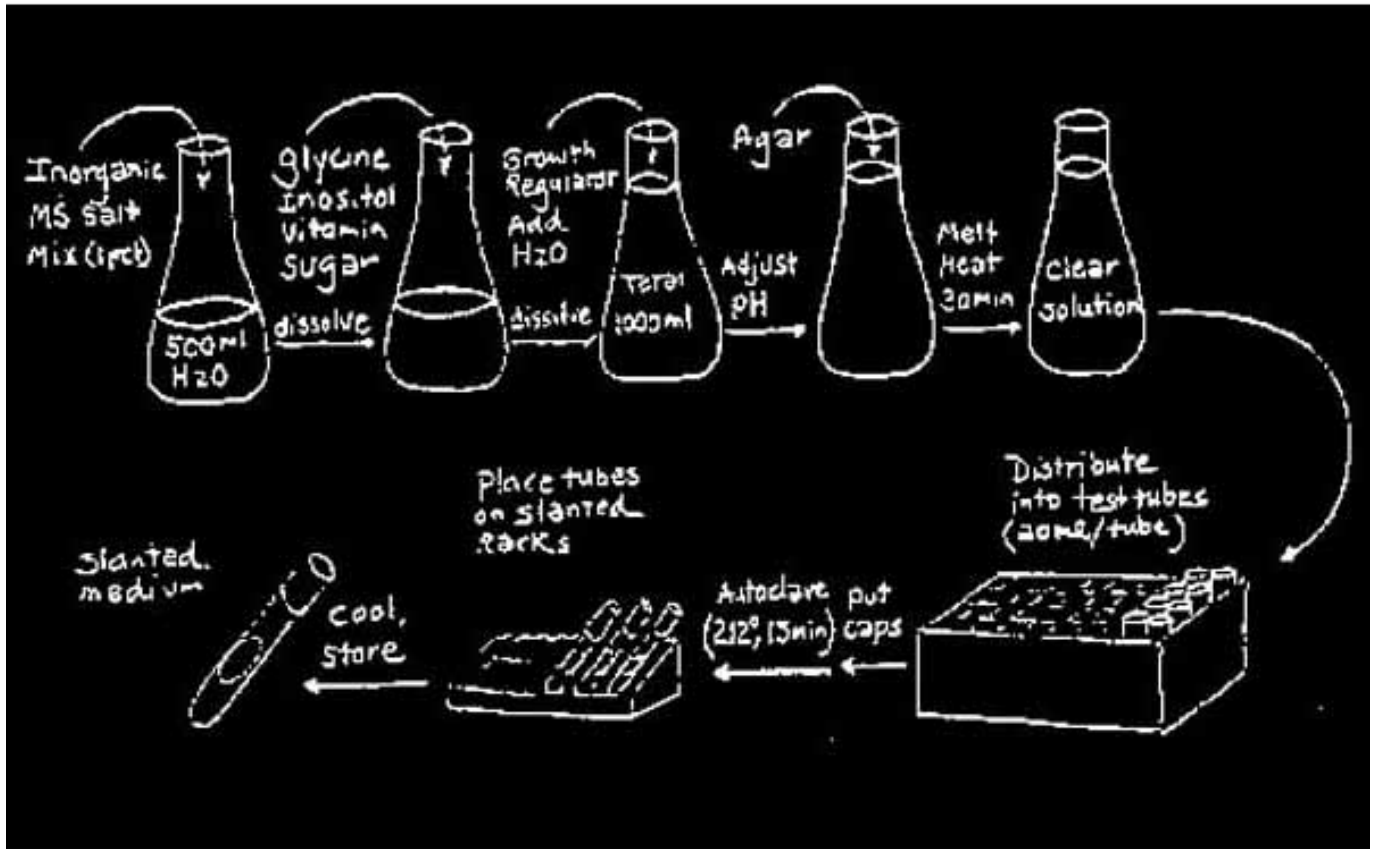 Inorganic
MS salt
Mix (1 pct)
500ml
H2O
glycine
Inositol
vitamin
sugar
dissolve
Growth
Regulator
Add
H2O
dissolve
Total
1000ml
Agar
Adjust
pH
Melt
Heat
20min
clear
solution
Distribute
into test tubes
(20ml/tube)
put
caps
Autoclave
(212°, 15min)
Place tubes
on slanted
racks
cool,
store
Slanted
medium